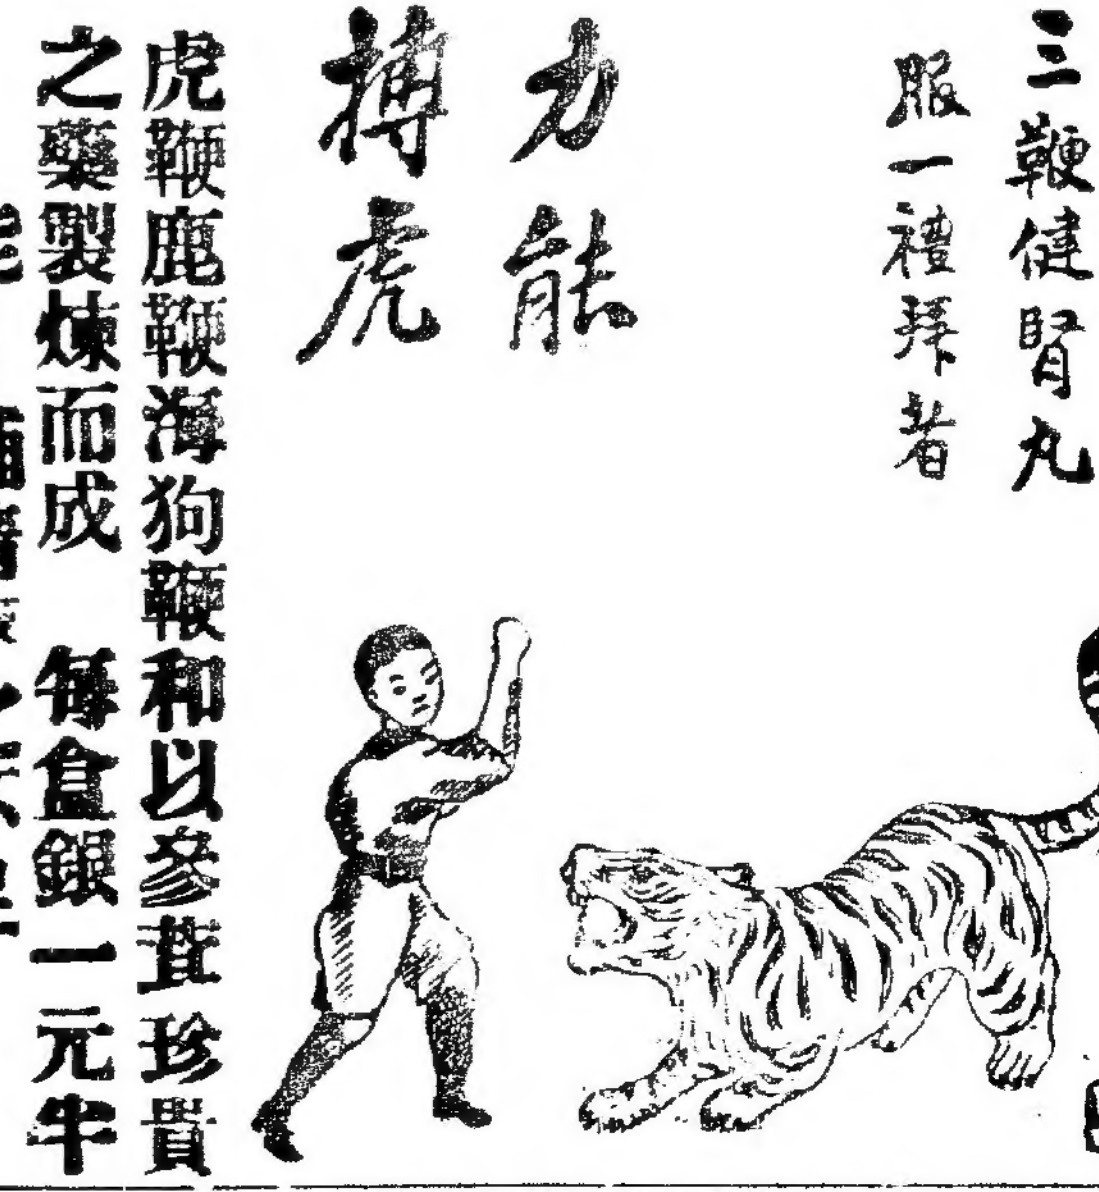 三鞭健腎丸
服一禮拜者
力能
搏虎
虎鞭鹿鞭海狗鞭和以參茸珍貴
之藥製煉而成 每盒銀一元半